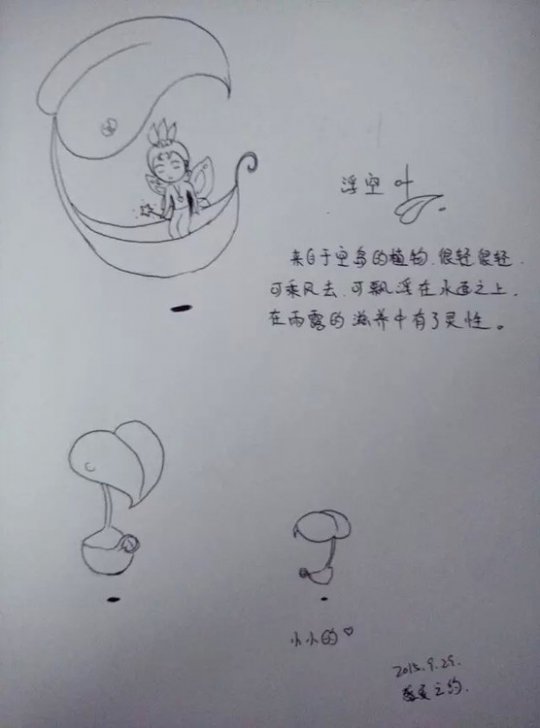 浮空叶
来自于空岛的植物.很轻很轻.
可乘风去.可飘浮在水面之上.
在雨露的滋养中有了灵性。
小小的♡
2015.9.29.
之约.